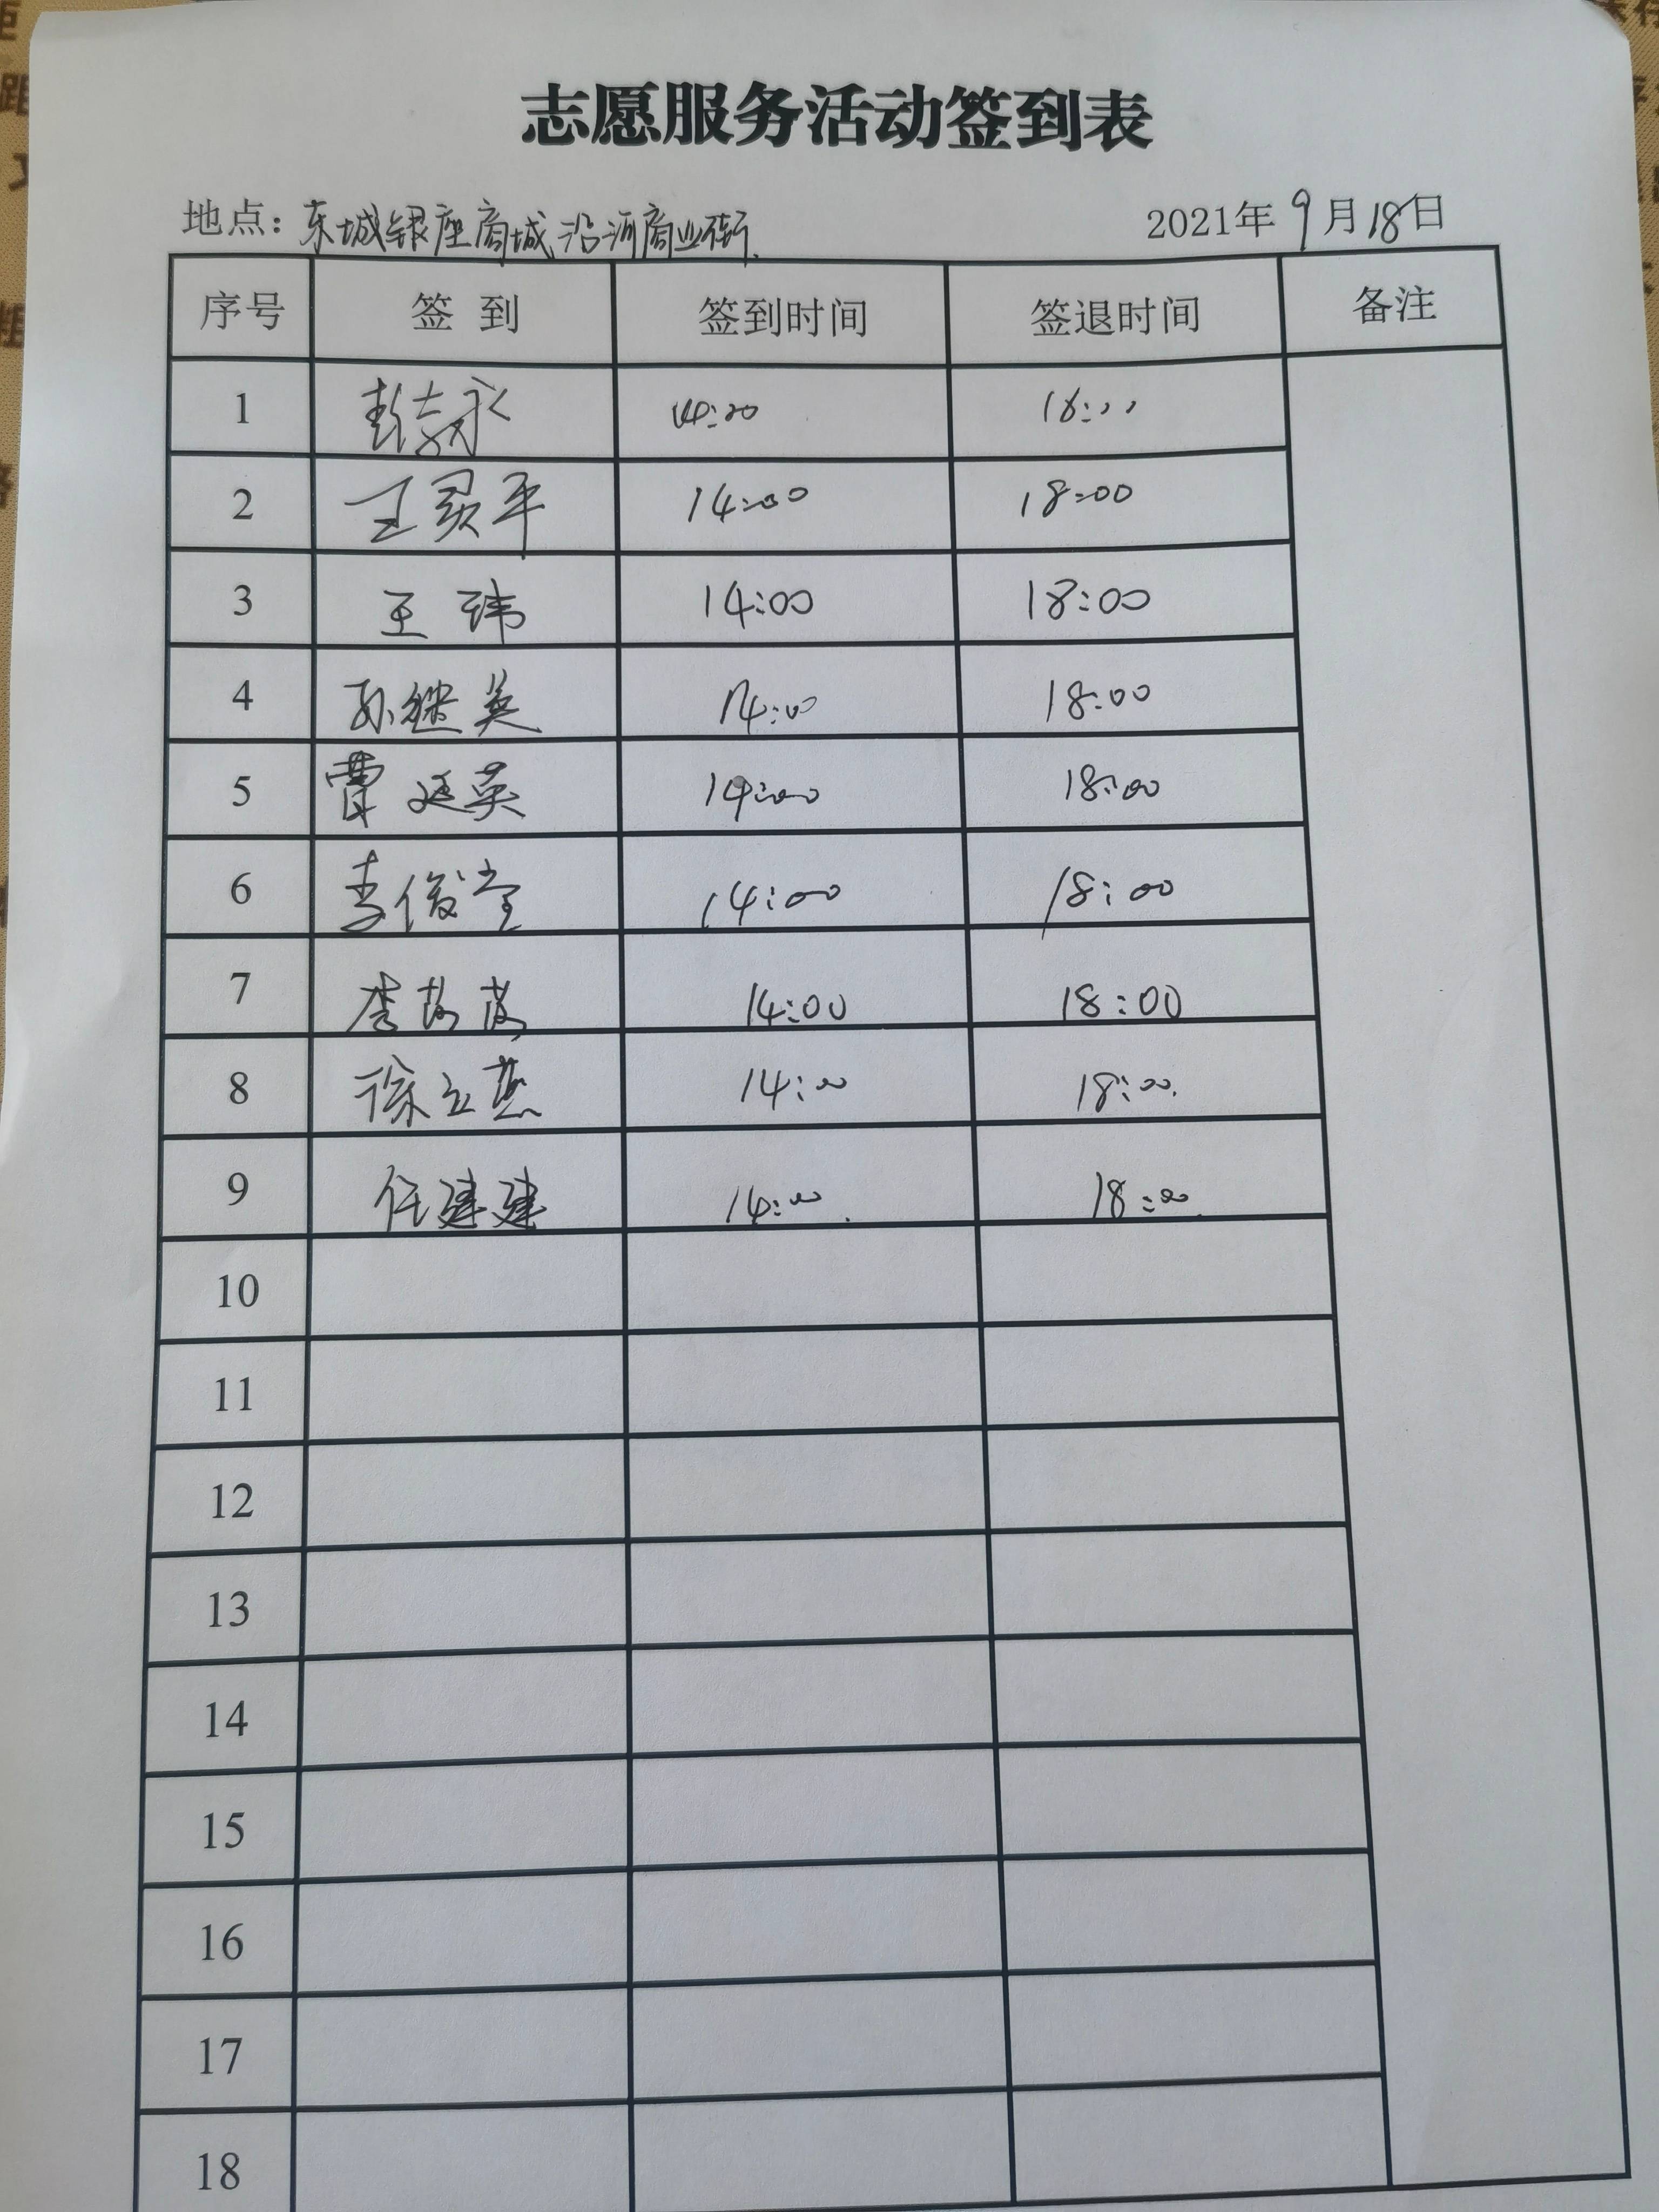 志愿服务活动签到表
地点：东城银座商城沿河商业街 2021年9月18日
序号 签到 签到时间 签退时间 备注
1 14:00 18:00
2 王灵平 14:00 18:00
3 王玮 14:00 18:00
4 孙继英 14:00 18:00
5 曹廷英 14:00 18:00
6 李俊堂 14:00 18:00
7 李 14:00 18:00
8 徐立燕 14:00 18:00
9 任建建 14:00 18:00
10
11
12
13
14
15
16
17
18